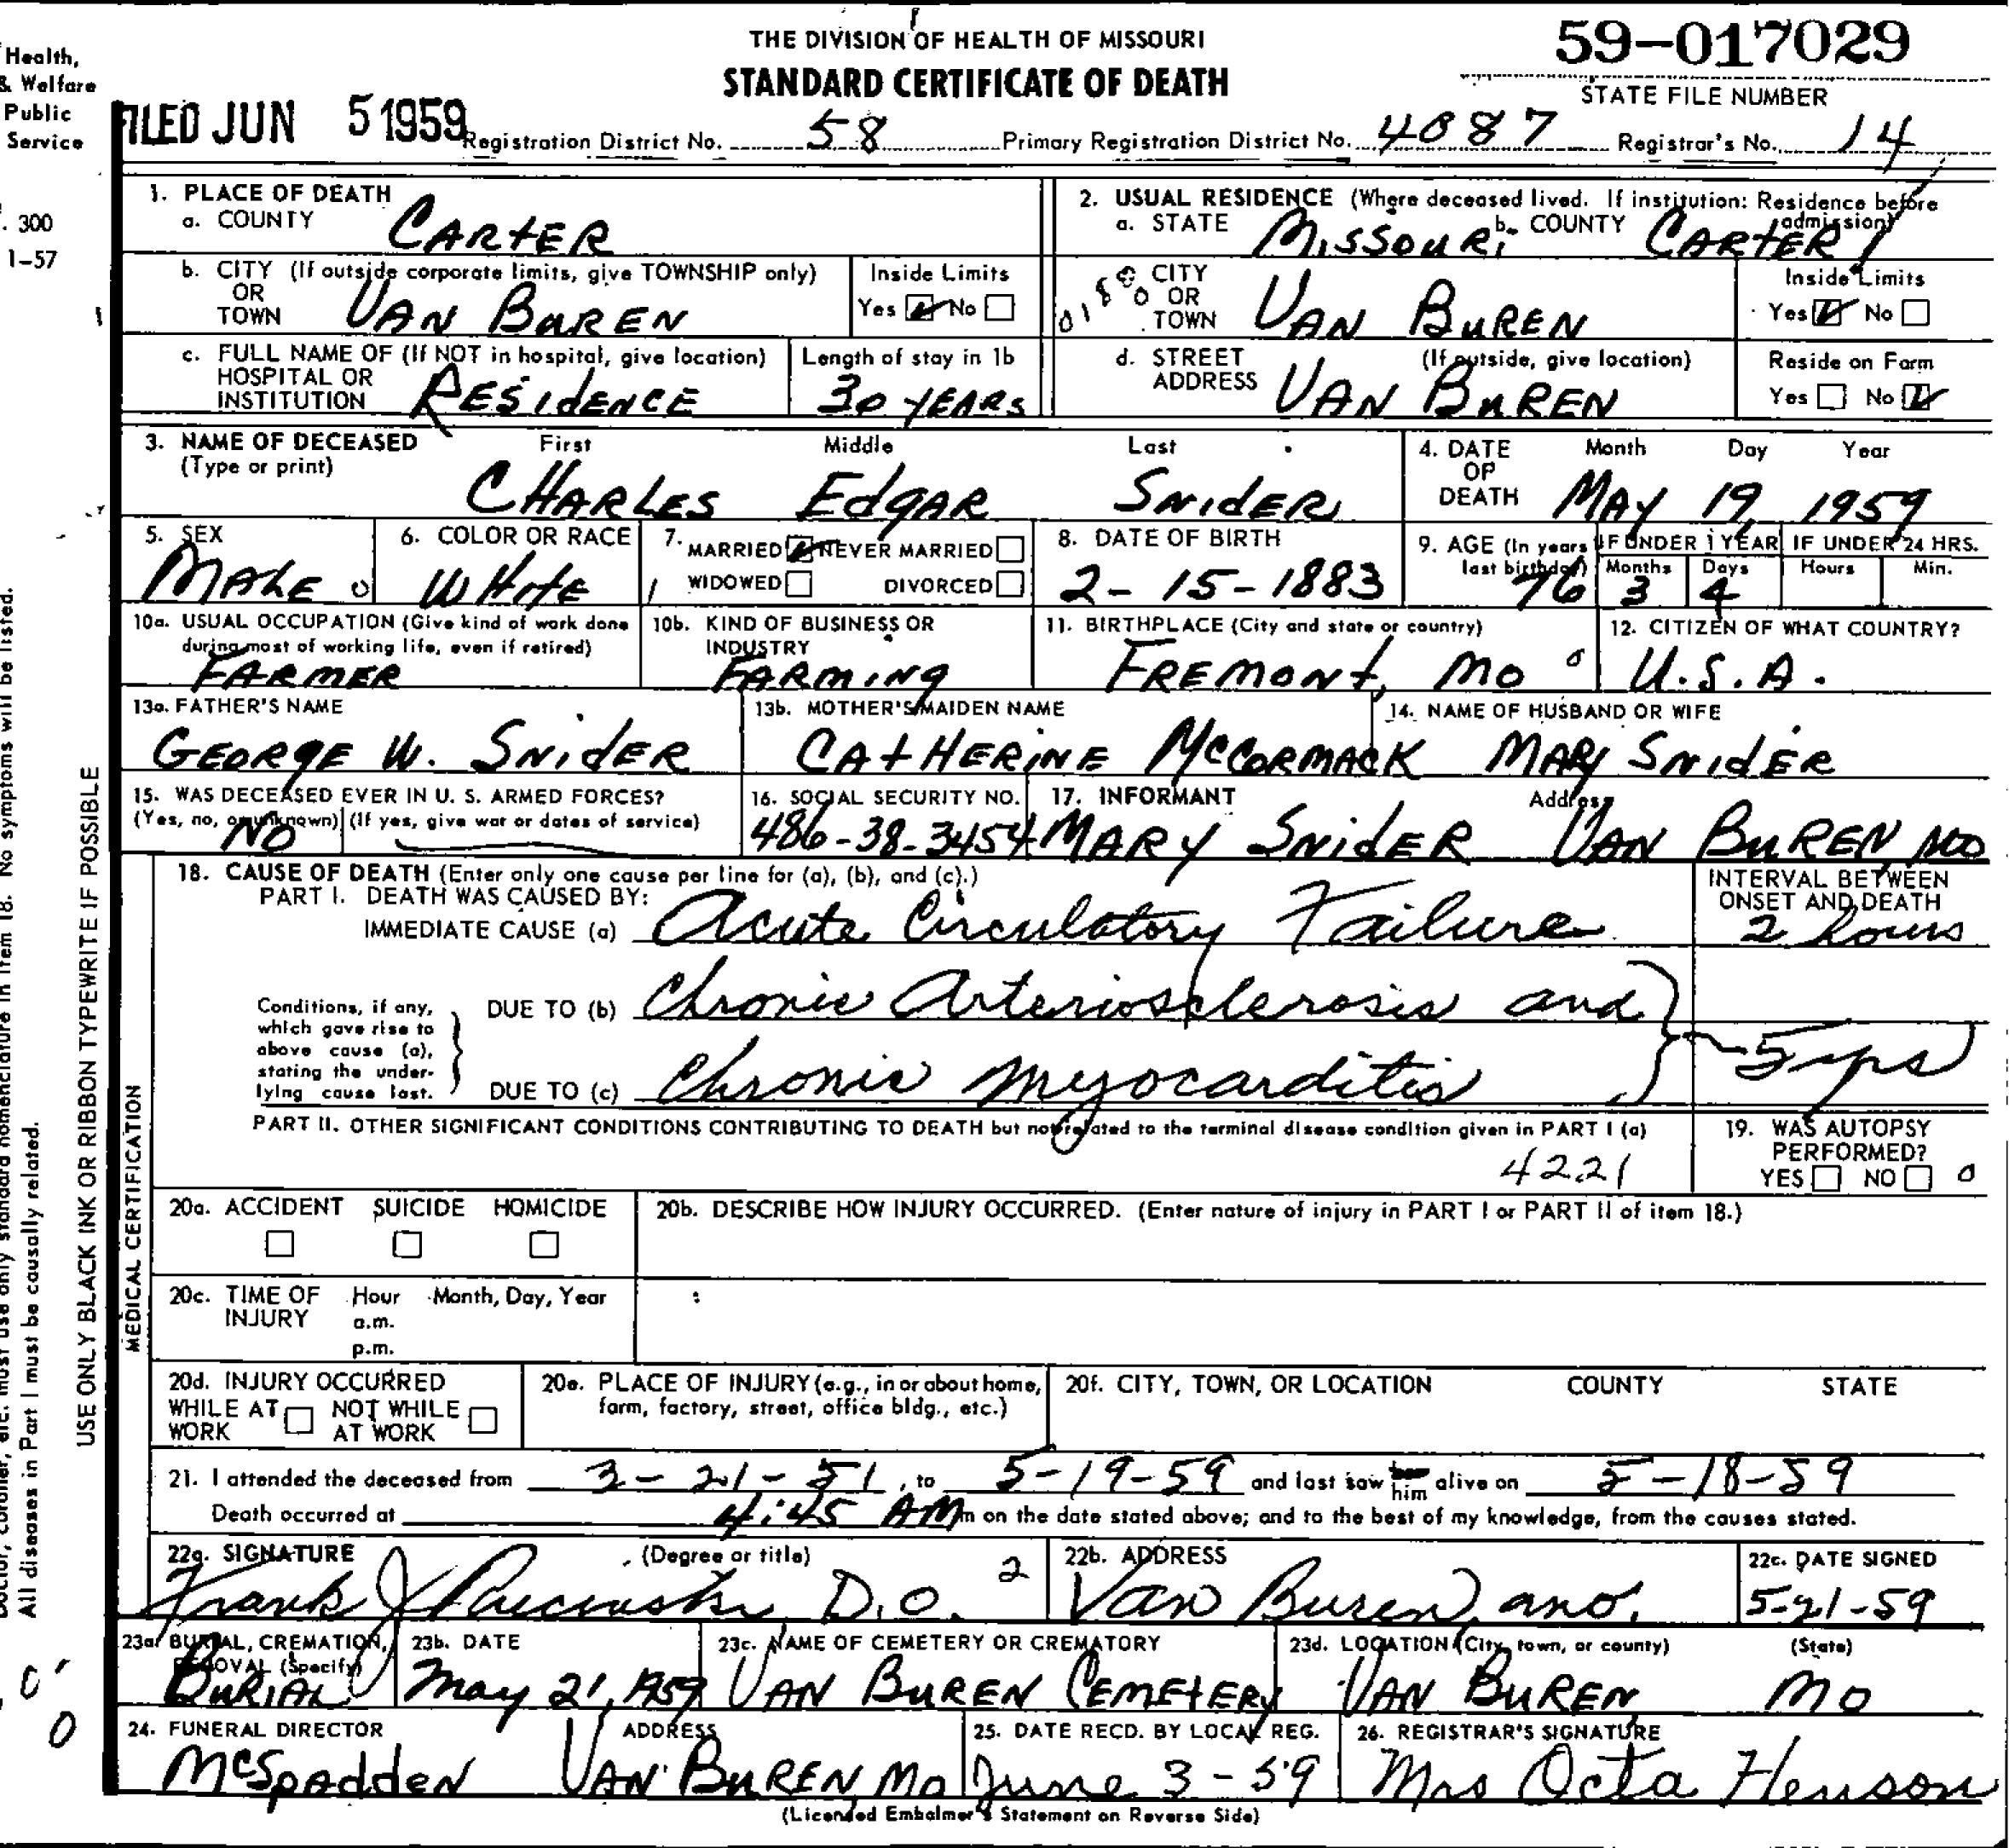 THE DIVISION OF HEALTH OF MISSOURI
59-017029
Health,
& Welfare
Public
Service
STANDARD CERTIFICATE OF DEATH
STATE FILE NUMBER
FILED JUN 5 1959 Registration District No. 58 Primary Registration District No. 4087 Registrar's No. 14
. 300
1-57
1. PLACE OF DEATH
a. COUNTY CARTER
2. USUAL RESIDENCE (Where deceased lived. If institution: Residence before admission)
a. STATE MISSOURI b. COUNTY CARTER
b. CITY (If outside corporate limits, give TOWNSHIP only) OR TOWN VAN BUREN
Inside Limits Yes No
c. CITY OR TOWN VAN BUREN
Inside Limits Yes No
c. FULL NAME OF (If NOT in hospital, give location) HOSPITAL OR INSTITUTION RESIDENCE
Length of stay in 1b 30 YEARS
d. STREET ADDRESS (If outside, give location) VAN BUREN
Reside on Farm Yes No
3. NAME OF DECEASED (Type or print)
First Middle Last
CHARLES EDGAR SNIDER
4. DATE OF DEATH Month Day Year
MAY 19, 1959
5. SEX MALE 0
6. COLOR OR RACE WHITE
7. MARRIED NEVER MARRIED
WIDOWED DIVORCED
8. DATE OF BIRTH 2-15-1883
9. AGE (In years last birthday) 76
IF UNDER 1 YEAR Months 3 Days 4
IF UNDER 24 HRS. Hours Min.
10a. USUAL OCCUPATION (Give kind of work done during most of working life, even if retired) FARMER
10b. KIND OF BUSINESS OR INDUSTRY FARMING
11. BIRTHPLACE (City and state or country) FREMONT, MO 0
12. CITIZEN OF WHAT COUNTRY? U.S.A.
13a. FATHER'S NAME GEORGE W. SNIDER
13b. MOTHER'S MAIDEN NAME CATHERINE McCORMACK
14. NAME OF HUSBAND OR WIFE MARY SNIDER
15. WAS DECEASED EVER IN U. S. ARMED FORCES?
(Yes, no, or unknown) (If yes, give war or dates of service)
NO
16. SOCIAL SECURITY NO. 486-38-3454
17. INFORMANT Address
MARY SNIDER VAN BUREN, MO
18. CAUSE OF DEATH (Enter only one cause per line for (a), (b), and (c).)
PART I. DEATH WAS CAUSED BY:
IMMEDIATE CAUSE (a) Acute Circulatory Failure
INTERVAL BETWEEN ONSET AND DEATH
2 hours
Conditions, if any, which gave rise to above cause (a), stating the underlying cause last.
DUE TO (b) Chronic Arteriosclerosis and
DUE TO (c) Chronic Myocarditis
5 yrs
PART II. OTHER SIGNIFICANT CONDITIONS CONTRIBUTING TO DEATH but not related to the terminal disease condition given in PART I (a)
4221
19. WAS AUTOPSY PERFORMED?
YES NO 0
20a. ACCIDENT SUICIDE HOMICIDE
20b. DESCRIBE HOW INJURY OCCURRED. (Enter nature of injury in PART I or PART II of item 18.)
20c. TIME OF INJURY Hour Month, Day, Year
a.m.
p.m.
20d. INJURY OCCURRED
WHILE AT WORK NOT WHILE AT WORK
20e. PLACE OF INJURY (e.g., in or about home, farm, factory, street, office bldg., etc.)
20f. CITY, TOWN, OR LOCATION COUNTY STATE
21. I attended the deceased from 3-21-51, to 5-19-59 and last saw her him alive on 5-18-59
Death occurred at 4:45 AM m on the date stated above; and to the best of my knowledge, from the causes stated.
22a. SIGNATURE (Degree or title)
Frank J D.O. 2
22b. ADDRESS Van Buren, mo.
22c. DATE SIGNED 5-21-59
23a. BURIAL, CREMATION, REMOVAL (Specify) BURIAL
23b. DATE May 21, 1959
23c. NAME OF CEMETERY OR CREMATORY VAN BUREN CEMETERY
23d. LOCATION (City, town, or county) (State)
VAN BUREN, MO
24. FUNERAL DIRECTOR ADDRESS
McSpadden VAN BUREN, MO
25. DATE RECD. BY LOCAL REG. June 3-59
26. REGISTRAR'S SIGNATURE Mrs Octa Henson
(Licensed Embalmer's Statement on Reverse Side)
MEDICAL CERTIFICATION
USE ONLY BLACK INK OR RIBBON TYPEWRITE IF POSSIBLE
All diseases in Part I must be causally related.
must use only standard nomenclature in item 18. No symptoms will be listed.